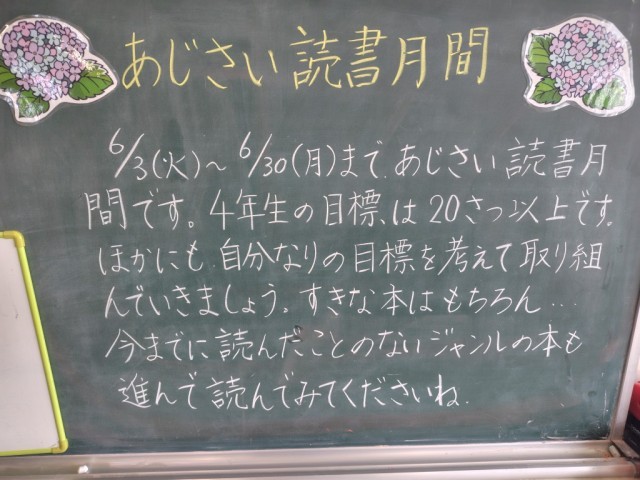 あじさい読書月間
6/3(火)～6/30(月)まで、あじさい読書月
間です。4年生の目標は20さつ以上です。
ほかにも自分なりの目標を考えて取り組
んでいきましょう。すきな本はもちろん…
今までに読んだことのないジャンルの本も
進んで読んでみてくださいね。